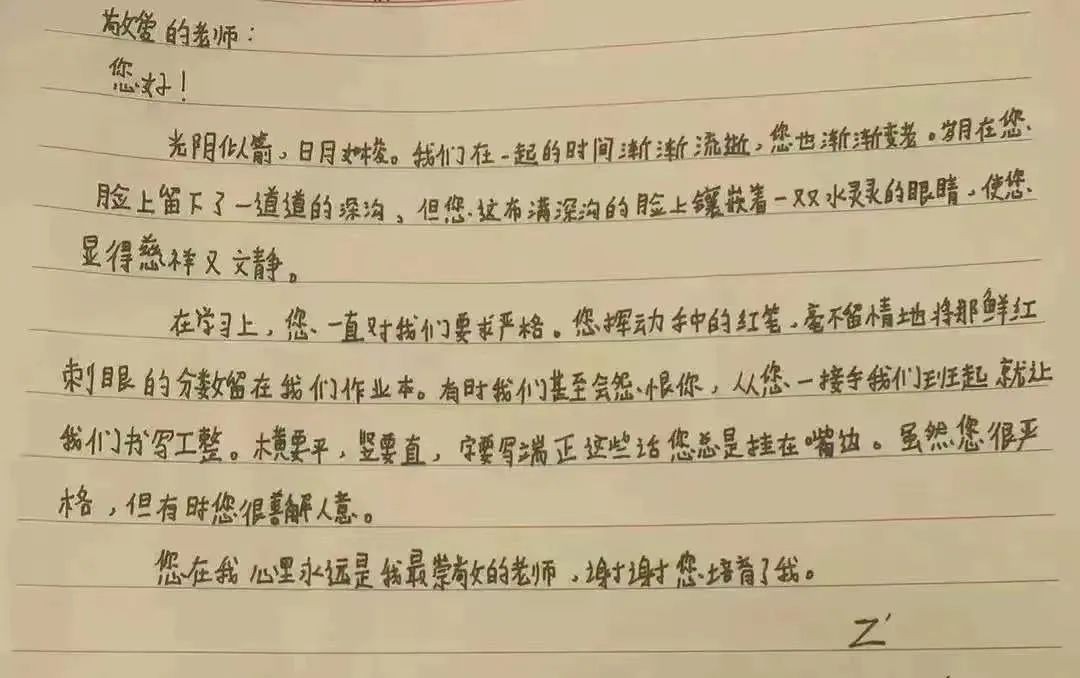 敬爱的老师：
您好！
光阴似人箭，日月如梭。我们在一起的时间渐渐流逝，您也渐渐变老。岁月在您
脸上留下了一道道的深沟，但您这布满深沟的脸上镶嵌着一双水灵灵的眼睛，使您
显得慈祥又文静。
在学习上，您一直对我们要求严格。您挥动手中的红笔，毫不留情地将那鲜红
刺眼的分数留在我们作业本。有时我们甚至会怨恨你，从您一接手我们班起就让
我们书写工整。横要平，竖要直，字要写端正这些话您总是挂在嘴边。虽然您很严
格，但有时您很善解人意。
您在我心里永远是我最崇敬的老师，谢谢您培育了我。
Z'